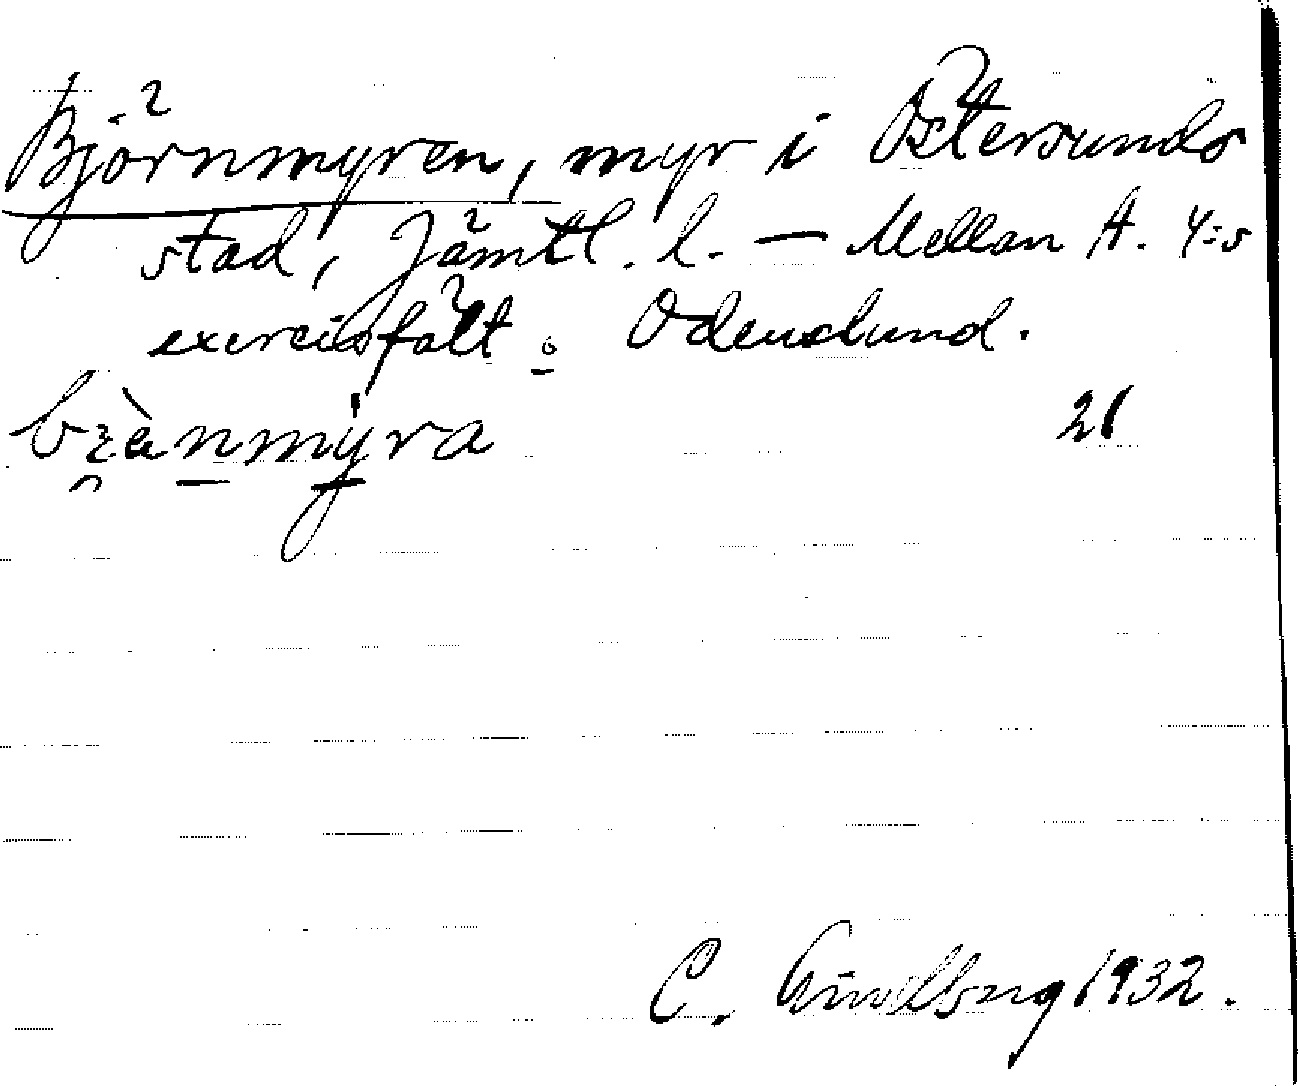 Björnmyren, myr i Östersunds
stad, Jämtl. l. — Mellan A. 4:s
exercisfält o. Odenslund.
21
C. 1932.